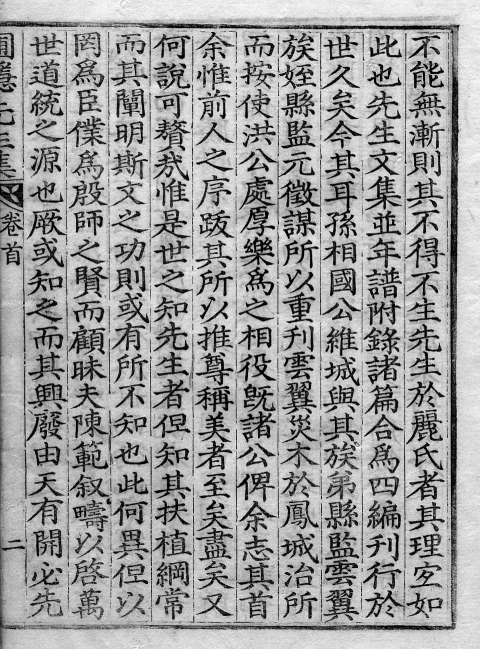 不能無漸則其不得不生先生於麗氏者其理㝎如
此也先生文集並年譜附錄諸篇合爲四編刊行於
世久矣今其耳孫相國公維城與其族弟縣監雲翼
族姪縣監元徵謀所以重刊雲翼災木於鳳城治所
而按使洪公處厚樂爲之相役旣諸公俾余志其首
余惟前人之序跋其所以推尊稱美者至矣盡矣又
何說可贅㢤惟是世之知先生者但知其扶植綱常
而其闡明斯文之功則或有所不知也此何異但以
罔爲臣僕爲殷師之賢而顧昧夫陳範叙疇以啓萬
世道統之源也厥或知之而其興廢由天有開必先
圃隱先生集
卷首
二